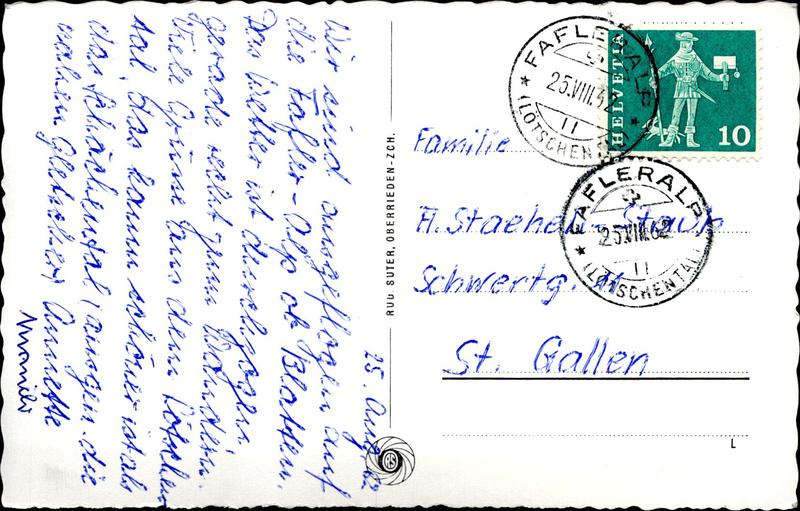 25. Aug. 62
Wir sind ausgeflogen auf
die Fafler-Alp ob Blatten.
Das Wetter ist durchzogen
gerade recht zum Wandern.
Viele Grüsse aus dem Lötschen
tal, das kaum schöner ist als
das Schächental (ausgen. die
nahen Gletscher) Annette
RUD. SUTER, OBERRIEDEN-ZCH.
RS
HELVETIA
10
FAFLERALP
25.VIII.62
11
(LÖTSCHENTAL)
FAFLERALP
25.VIII.62
11
(LÖTSCHENTAL)
Familie
A. Staehelin-Staub
Schwertg.
St. Gallen
L